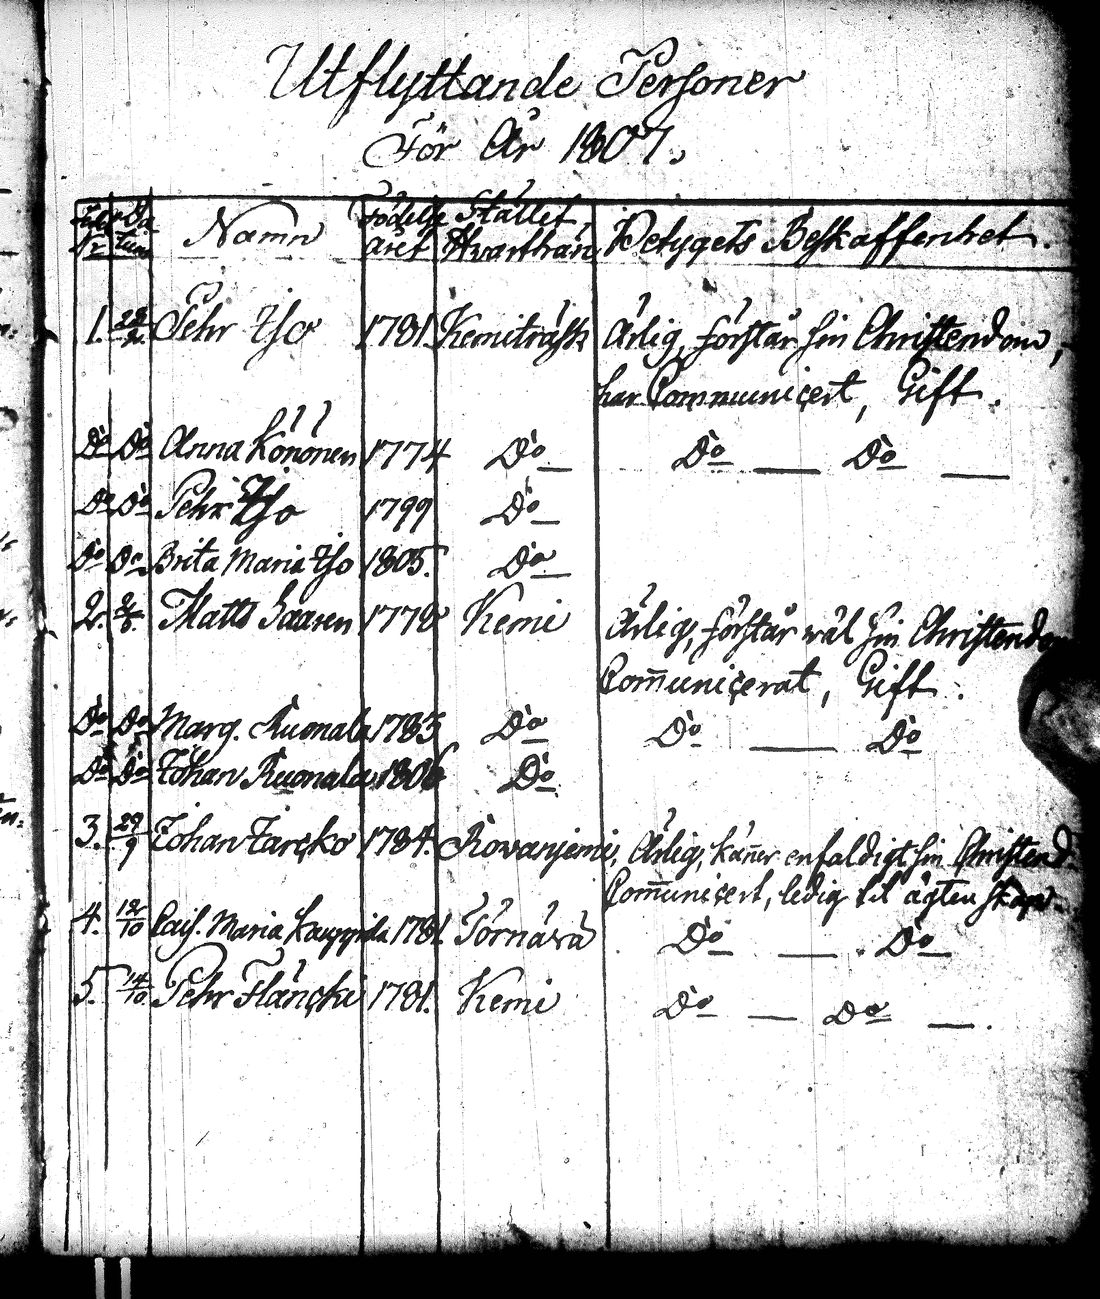 Utflyttande Personer
För År 1807.
Namn Födelse året Stället Hvarthän Betygets Beskaffenhet.
1. Pehr Iso 1781. Kemiträsk Ärlig, förstår sin Christendom,
har Communicert, Gift.
Do Do Anna Könönen 1774 Do Do Do
Do Do Pehr Iso 1799 Do
Do Do Brita Maria Iso 1805. Do
2. Matts Saaren 1778 Kemi Ärlig, förstår wäl sin Christendom
Com̄unicerat, Gift.
Do Do Marg. Ruonala 1783 Do Do Do
Do Do Johan Ruonala 1806 Do
3. 29/9 Johan 1784. Rowanjemi, Ärlig, kan̄er enfaldigt sin Christend.
Com̄unicert, ledig til ägtenskap.
4. 12/10 Cais. Maria Kauppila 1781. Törnävä Do Do
5. 14/10 Pehr Fläncki 1781. Kemi Do Do